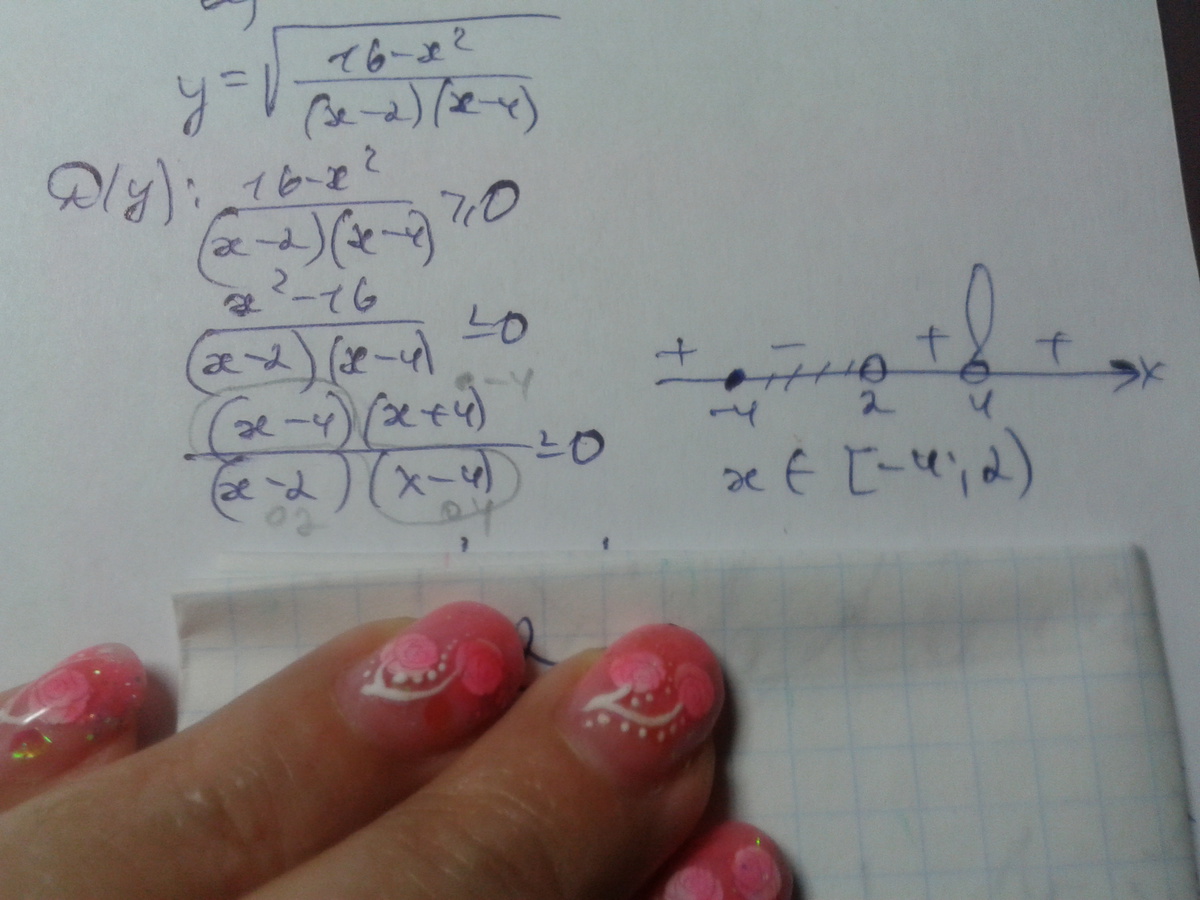 y = √((16-x²)/((x-2)(x-4)))
D(y): (16-x²)/((x-2)(x-4)) ⩾ 0
(x²-16)/((x-2)(x-4)) ≤ 0
((x-4)(x+4))/((x-2)(x-4)) ≤ 0
•-4
o2 o4
+ - + +
-4 2 4 x
x ∈ [-4; 2)
2